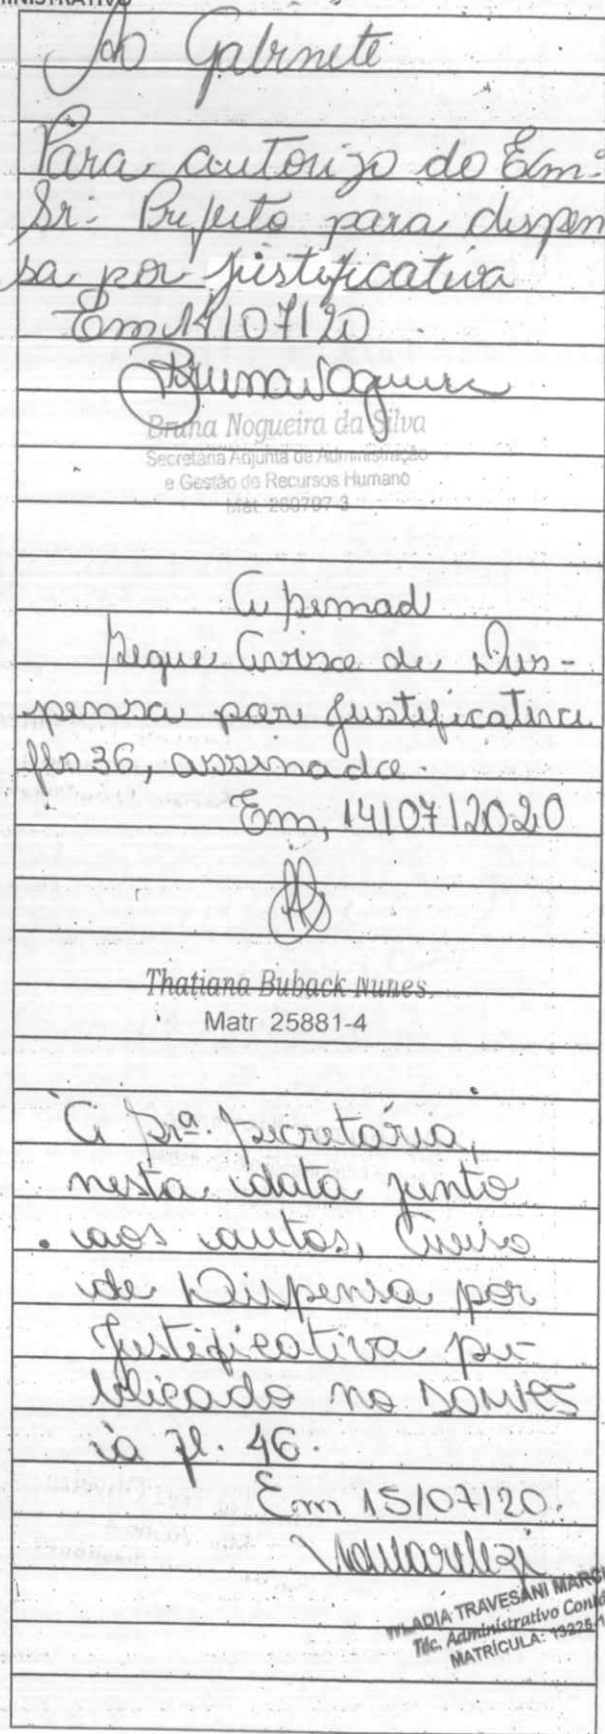 MINISTRATIVO
Ao Gabinete
Para autorizo do Exmº
Sr. Prefeito para dispen
sa por justificativa
Em 14/07/20
Bruna Nogueira da Silva
Secretária Adjunta de Administração
e Gestão de Recursos Humano
Mat. 260797-3
A Semad
Segue Aviso de Dis-
pensa por Justificativa
fls 36, assinado
Em, 14/07/2020
Thatiana Buback Nunes
Matr 25881-4
À Srª. Secretária,
nesta data junto
aos autos, Aviso
de Dispensa por
Justificativa pu-
blicado no DOM/ES
à fl. 46.
Em 15/07/20.
WLADIA TRAVESANI
Téc. Administrativo
MATRÍCULA: 13225-1